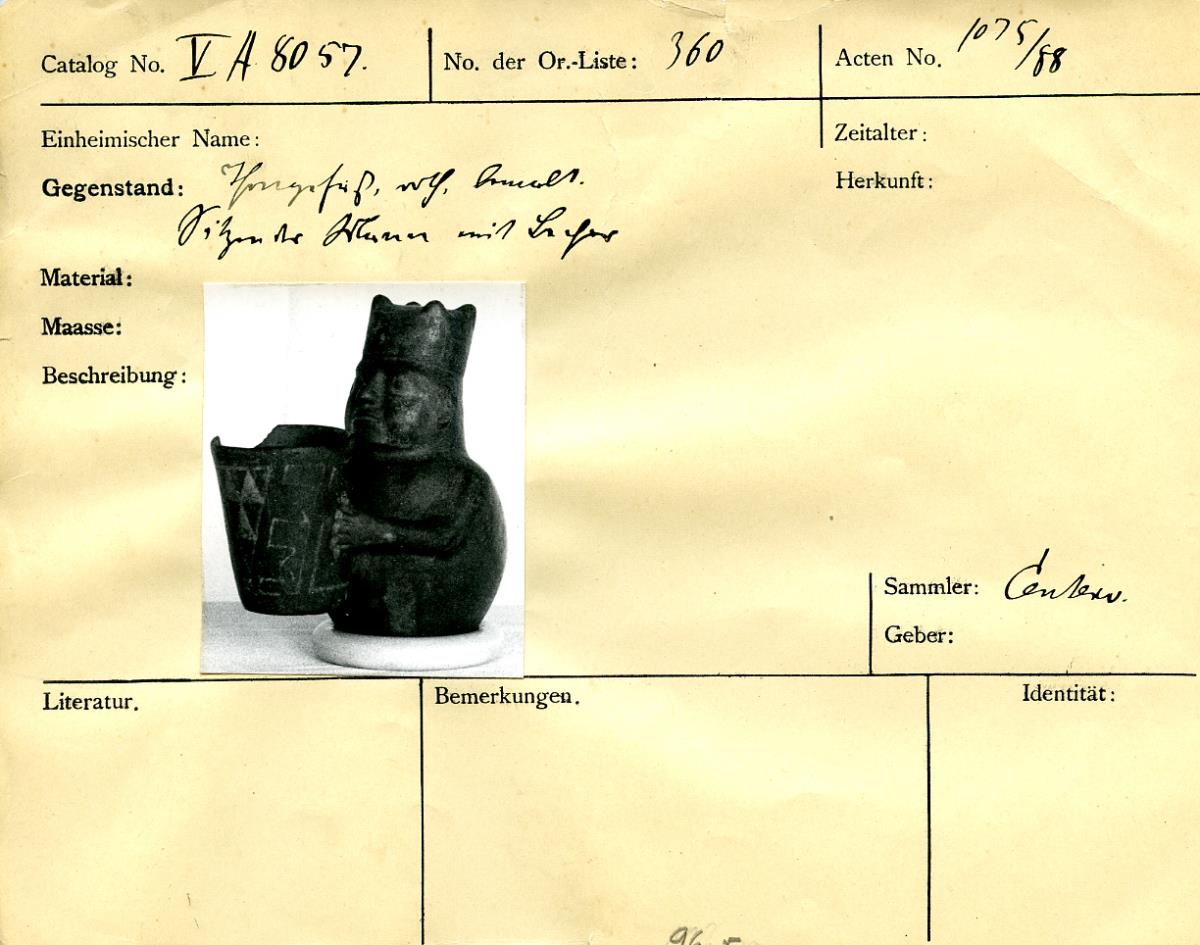 Catalog No. V A 8057.
No. der Or.-Liste: 360
Acten No. 1075/88
Einheimischer Name:
Zeitalter:
Gegenstand: Thongefäß, roth, bemalt.
Herkunft:
Sitzender Mann mit Becher
Material:
Maasse:
Beschreibung:
Sammler: Centeno.
Geber:
Literatur.
Bemerkungen.
Identität: